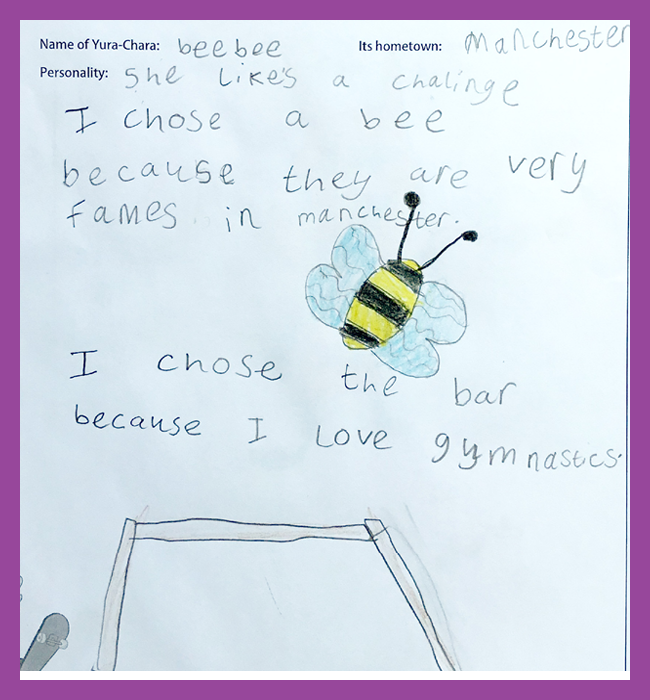 Name of Yura-Chara: beebee Its hometown: Manchester
Personality: She like's a chalinge
I chose a bee
because they are very
fames in manchester.
I chose the bar
because I love gymnastics.